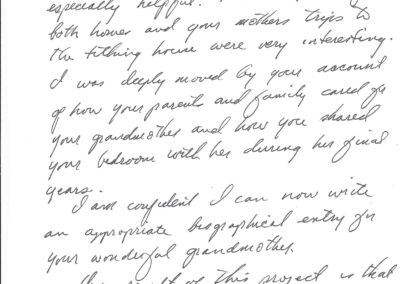 especially helpful.
both homes and your mothers trips to
the tithing house were very interesting.
I was deeply moved by your account
of how your parents and family cared for
your grandmother and how you shared
your bedroom with her during her final
years.
I am confident I can now write
an appropriate biographical entry for
your wonderful grandmother.
of this project is that